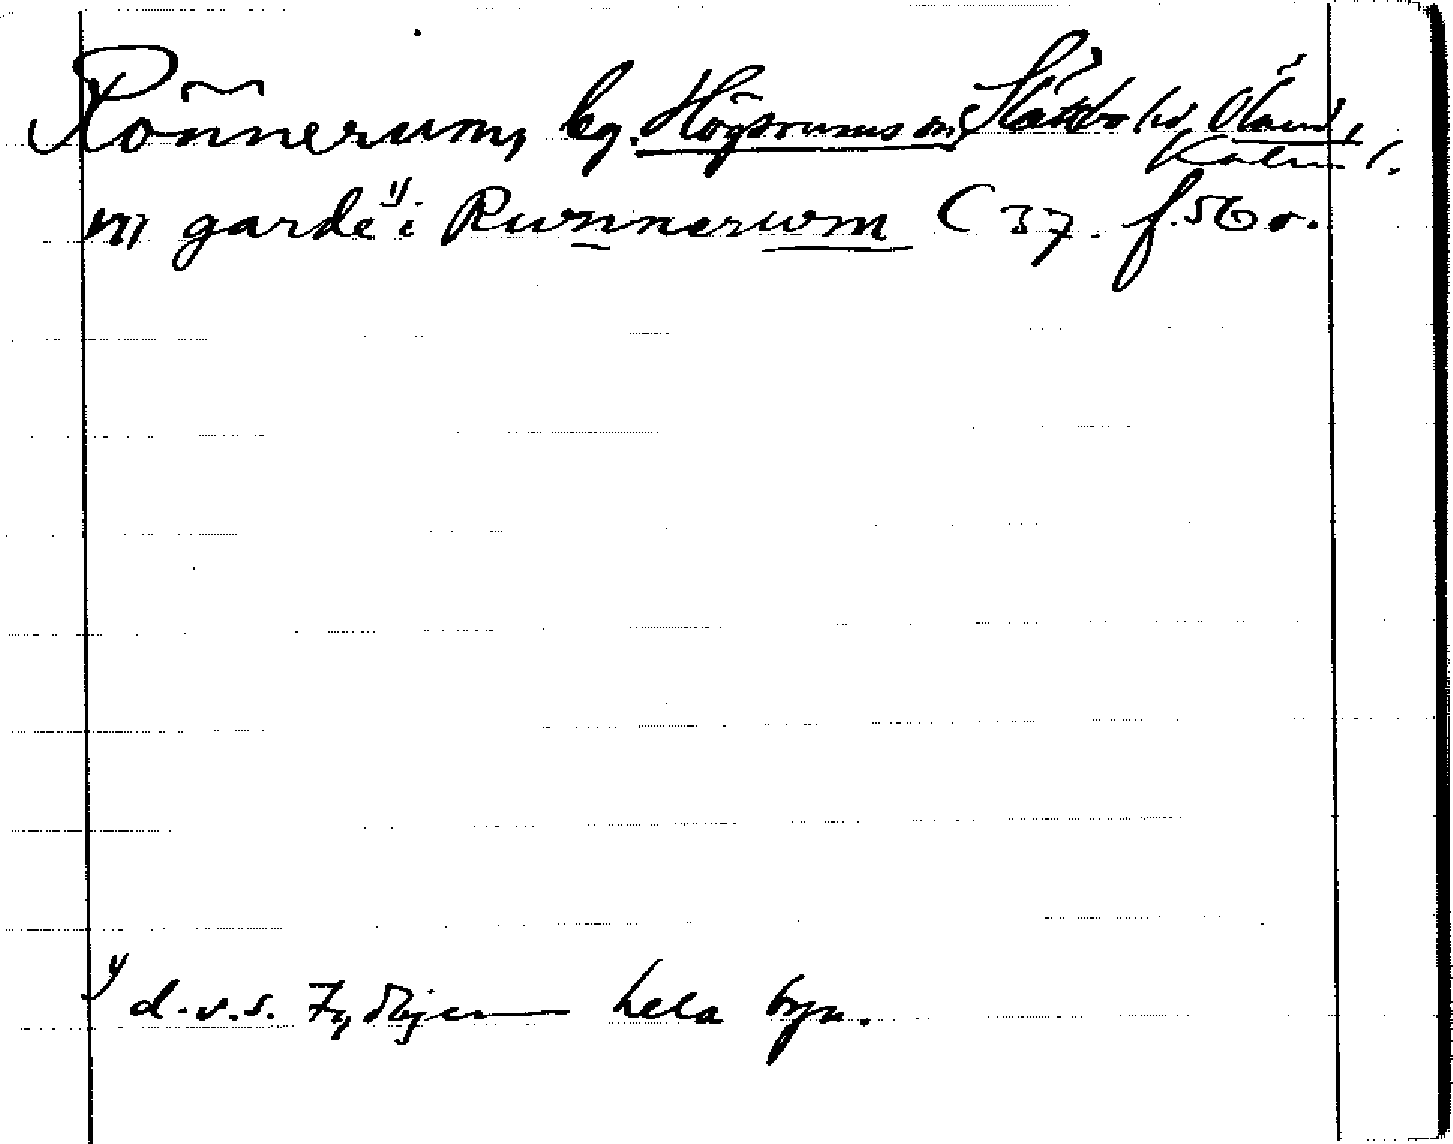 Rönnerum, by. Högsrums sn, Slättbo hd, Öland,
Kalm. l.
VII gardé i Runnerum C 37. f. 56 v.
1) d.v.s. hela byn.